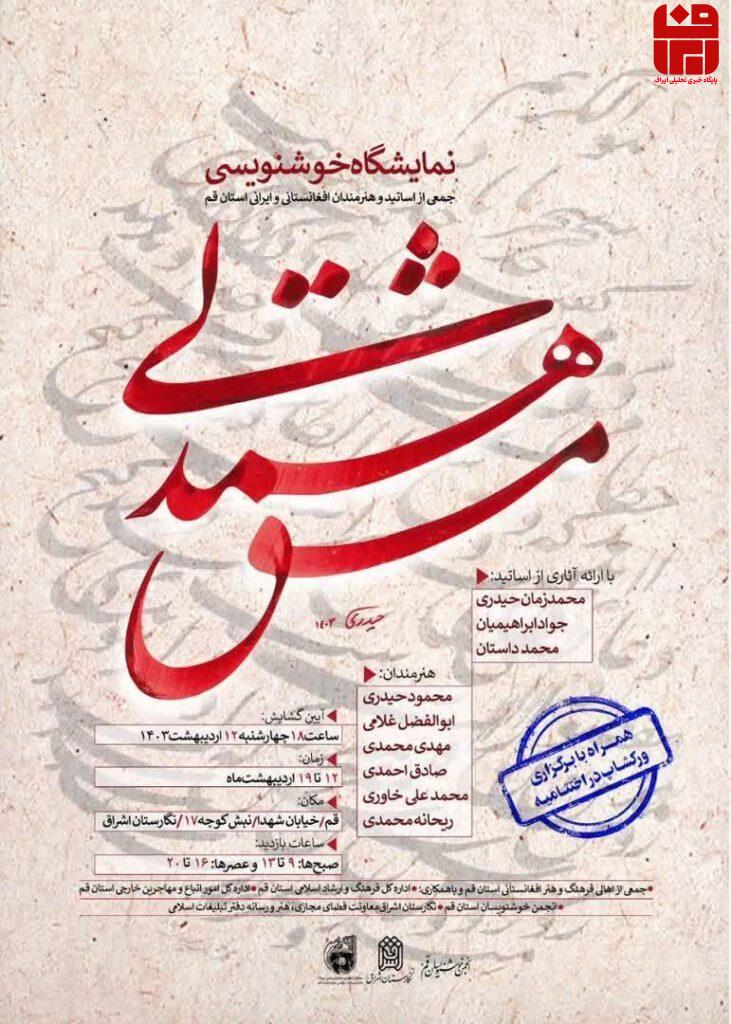 ایراف
پایگاه خبری تحلیلی ایراف
نمایشگاه خوشنویسی
جمعی از اساتید و هنرمندان افغانستانی و ایرانی استان قم
مشق همدلی
حیدری ۱۴۰۳
با ارائه آثاری از اساتید:
محمدزمان حیدری
جواد ابراهیمیان
محمد داستان
هنرمندان:
محمود حیدری
ابوالفضل غلامی
مهدی محمدی
صادق احمدی
محمد علی خاوری
ریحانه محمدی
آیین گشایش:
ساعت ۱۸ چهارشنبه ۱۲ اردیبهشت ۱۴۰۳
زمان:
۱۲ تا ۱۹ اردیبهشت‌ماه
مکان:
قم/خیابان شهدا/نبش کوچه ۱۷/نگارستان اشراق
ساعات بازدید:
صبح‌ها: ۹ تا ۱۳ و عصرها: ۱۶ تا ۲۰
همراه با برگزاری
ورکشاپ در اختتامیه
•جمعی از اهالی فرهنگ و هنر افغانستانی استان قم و باهمکاری: •اداره کل فرهنگ و ارشاد اسلامی استان قم •اداره کل امور اتباع و مهاجرین خارجی استان قم
•انجمن خوشنویسان استان قم •نگارستان اشراق معاونت فضای مجازی، هنر و رسانه دفتر تبلیغات اسلامی
انجمن خوشنویسان قم
نگارستان اشراق